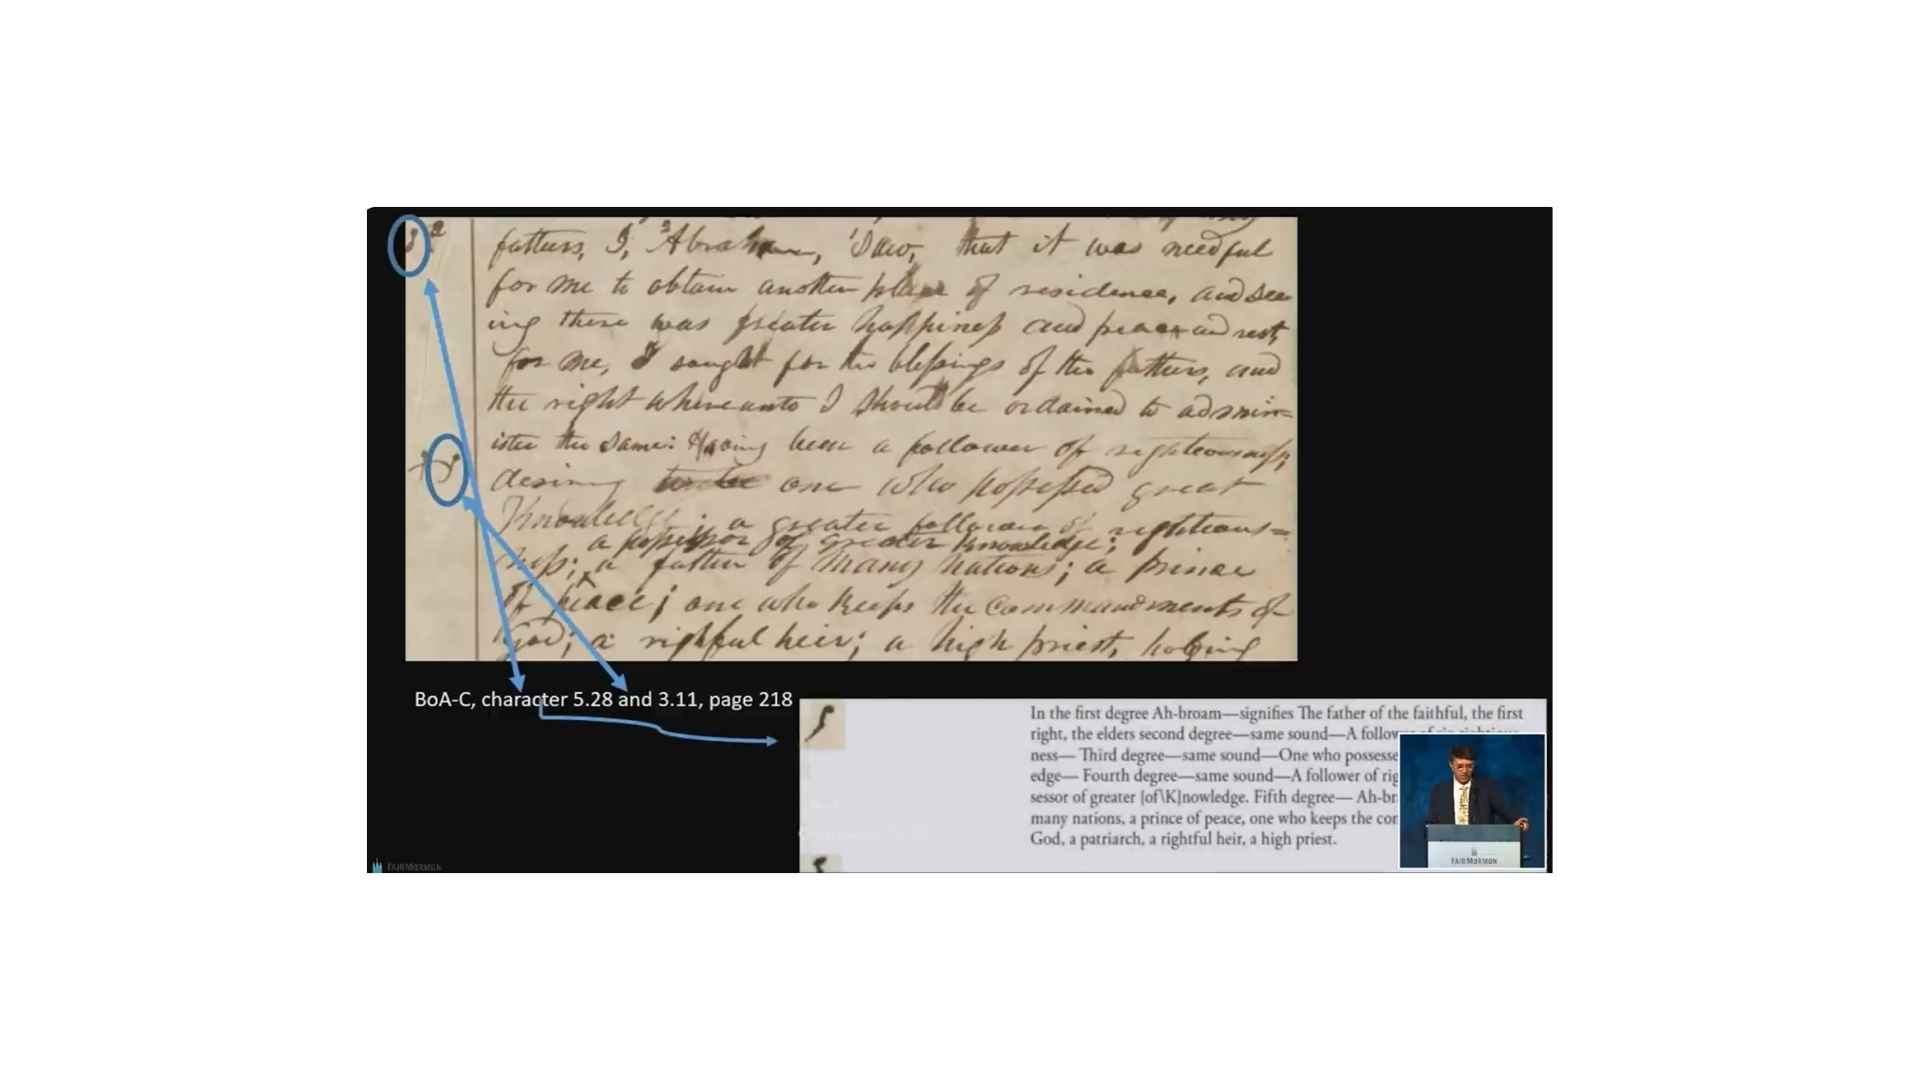 2 fathers, I, ²Abraham, ¹Saw, that it was needful
for me to obtain another place of residence, and see
ing there was greater happiness and peace and rest,
for me, I sought for the blessings of the fathers, and
the right whereunto I should be ordained to admin=
ister the same: Having been a follower of righteousness,
desiring to be one who possessed great
Knowledge; a greater follower of righteous=
a possessor of greater knowledge;
ness; a father of many nations; a prince
of peace; one who keeps the commandments of
God; a rightful heir; a high priest, holding
BoA-C, character 5.28 and 3.11, page 218
In the first degree Ah-broam—signifies The father of the faithful, the first
right, the elders second degree—same sound—A follow
ness— Third degree—same sound—One who possesse
edge— Fourth degree—same sound—A follower of rig
sessor of greater [of\K]nowledge. Fifth degree— Ah-br
many nations, a prince of peace, one who keeps the cor
God, a patriarch, a rightful heir, a high priest.
FAIRMORMON
FAIRMORMON